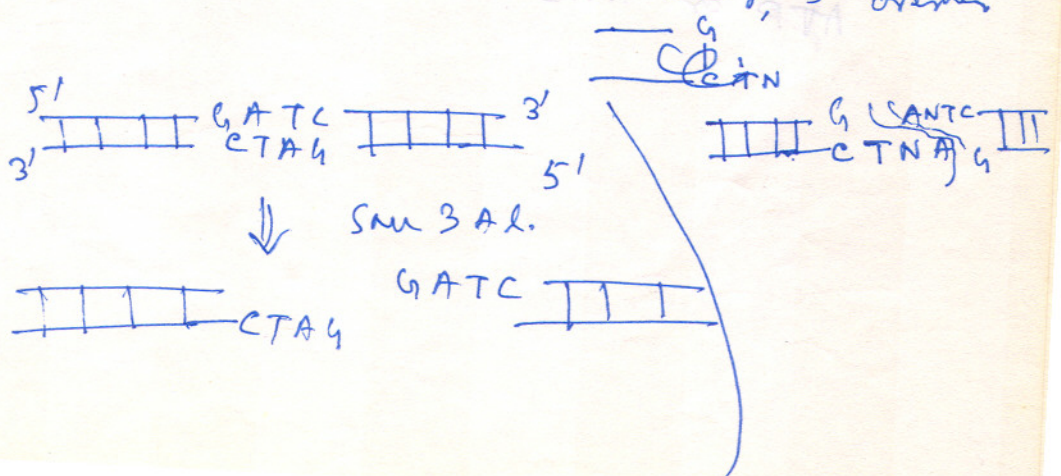 G
CTN
5' GATC 3'
3' CTAG 5'
G ANTC
CTNA G
Sau 3 Al.
GATC
CTAG